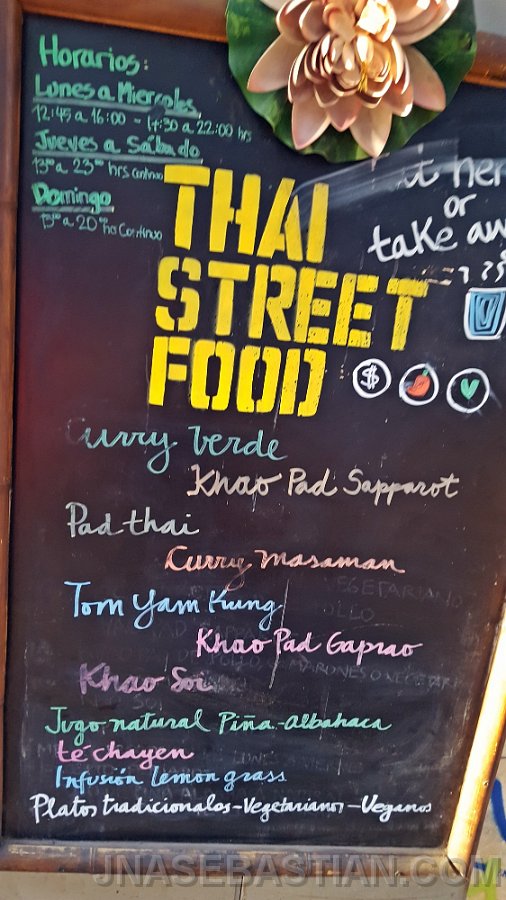 Horarios:
Lunes a Miercoles
12:45 a 16:00 - 17:30 a 22:00 hrs
Jueves a Sábado
13:00 a 23:00 hrs Continuo
Domingo
13:00 a 20:00 hrs Continuo
THAI
STREET
FOOD
or
take aw
$
Curry Verde
Khao Pad Sapparot
Pad thai
Curry Masaman
Tom Yam Kung
Khao Pad Gaprao
Khao Soi
Jugo natural Piña-albahaca
té chayen
Infusión lemon grass
Platos tradicionales-Vegetarianos-Veganos
JNASEBASTIAN.COM